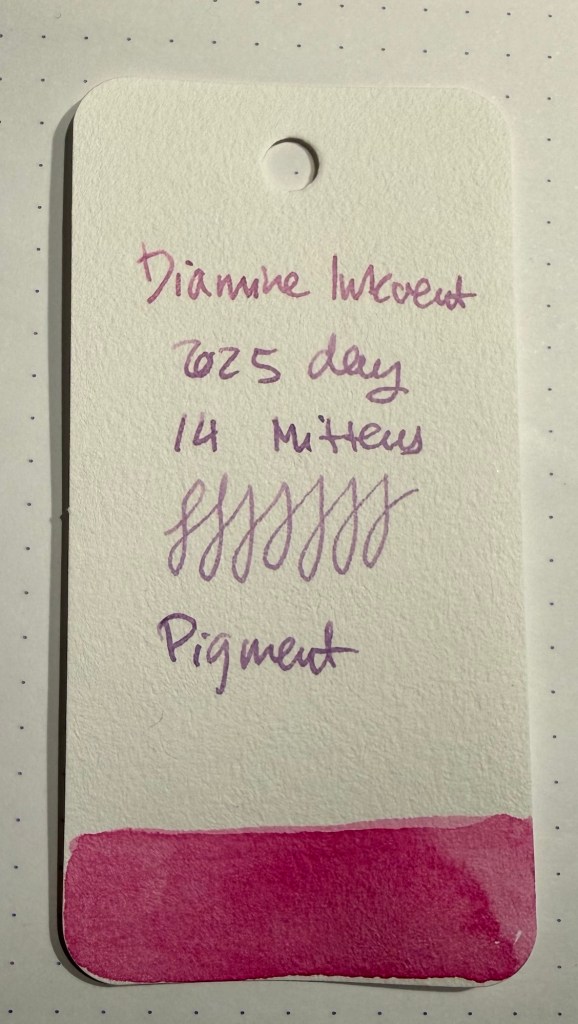 Diamine Inkvent
2025 day
14 Mittens
Pigment